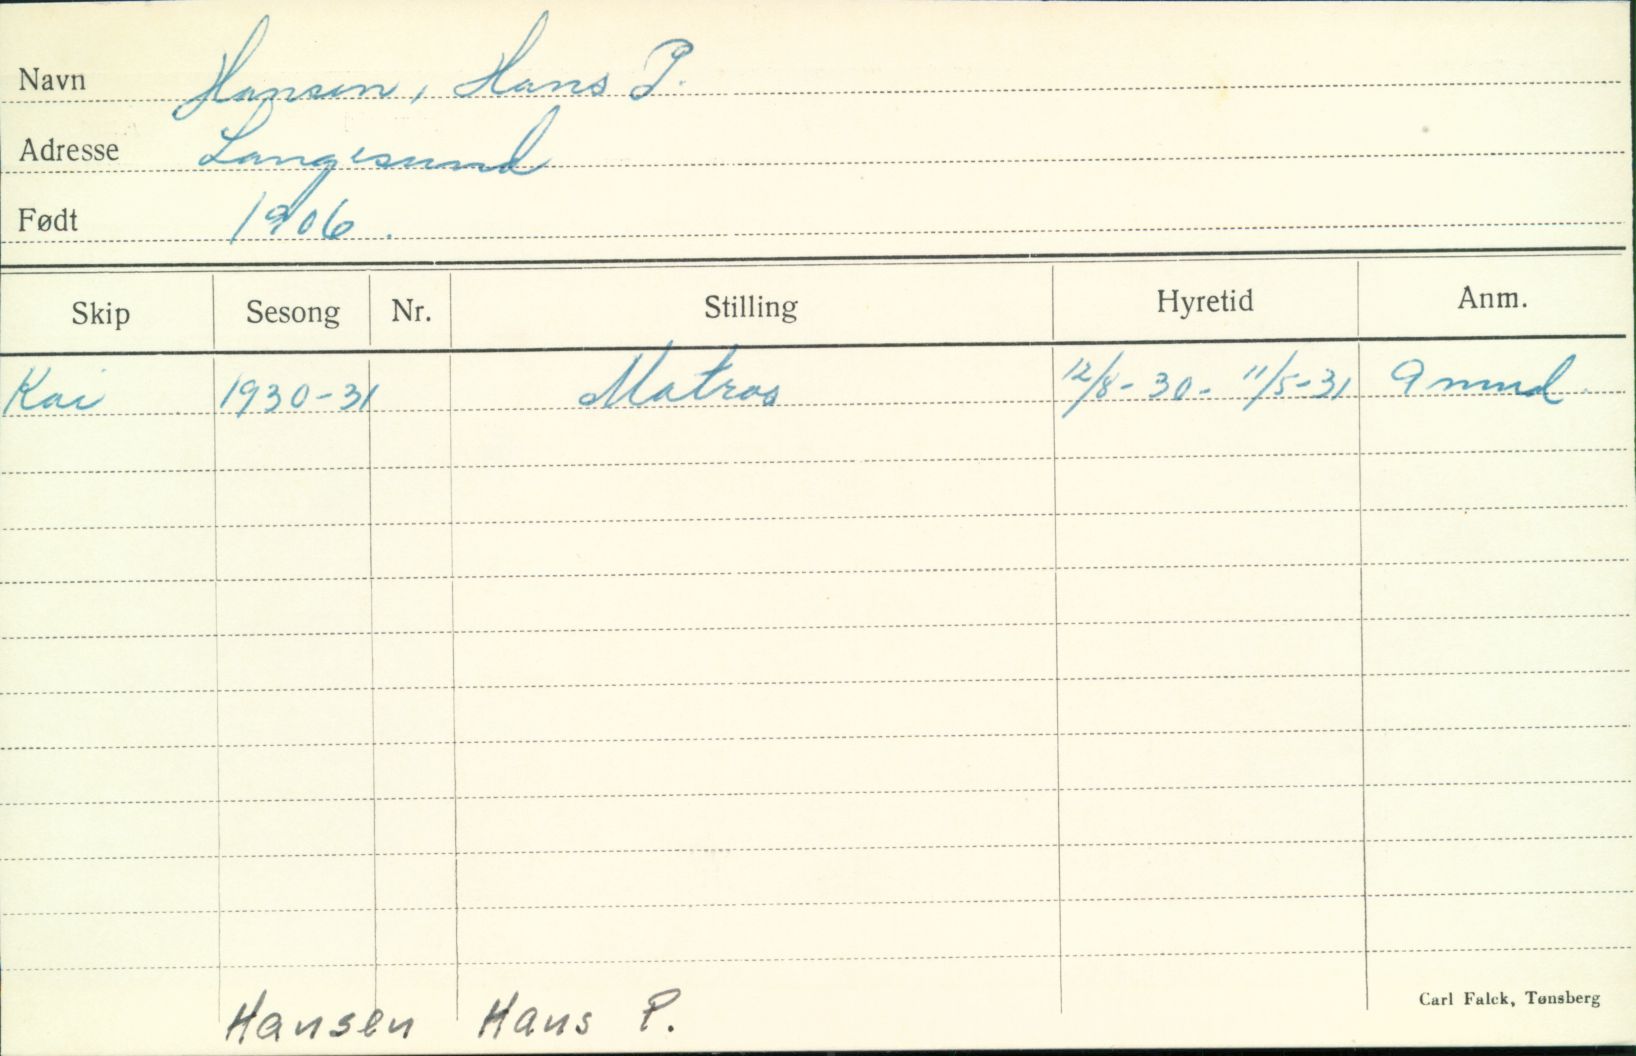 Navn Hansen, Hans P.
Adresse Langesund
Født 1906.
Skip Sesong Nr. Stilling Hyretid Anm.
Kai 1930-31 Matros 12/8-30- 11/5-31 9 mnd.
Carl Falck, Tønsberg
Hansen Hans P.